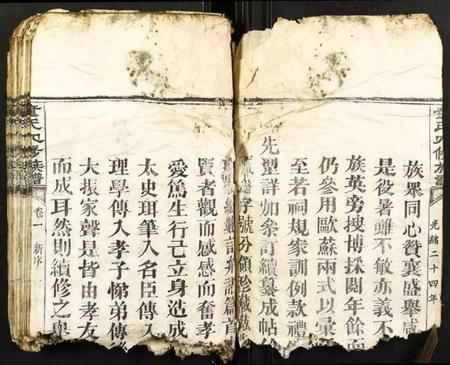 族眾同心贊襄盛舉咸
是役暑雖不敏亦義不
族英旁搜博採閱年餘而
仍參用歐蘇兩式以彙
至若祠規家訓例款禮
先塋詳加条訂續纂成帖
字號分領珍藏
賢者觀而感感而奮孝
愛篤生行己立身造成
太史珥筆入名臣傳入
理學傳入孝子悌弟傳
大振家聲是皆由孝友
而成耳然則續修之舉
光緒二十四年
氏四修族譜
卷一
新序